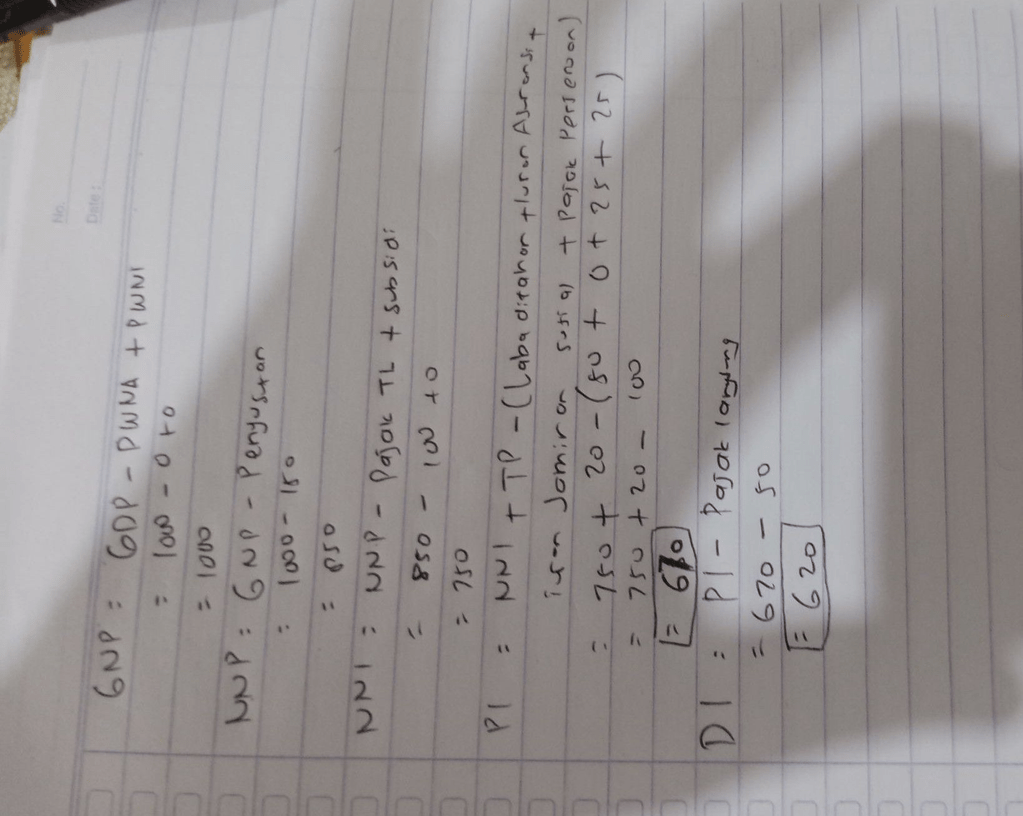 No.
Date:
GNP = GDP - PWNA + PWNI
= 1000 - 0 + 0
= 1000
NNP = GNP - Penyustan
= 1000 - 150
= 850
NNI = NNP - Pajak TL + Subsidi
= 850 - 100 + 0
= 750
PI = NNI + TP - (Laba ditahan + Iuran Asuransi +
iuran Jaminan sosial + Pajak Perseroan)
= 750 + 20 - (50 + 0 + 25 + 25)
= 750 + 20 - 100
= 670
DI = PI - Pajak langsung
= 670 - 50
= 620